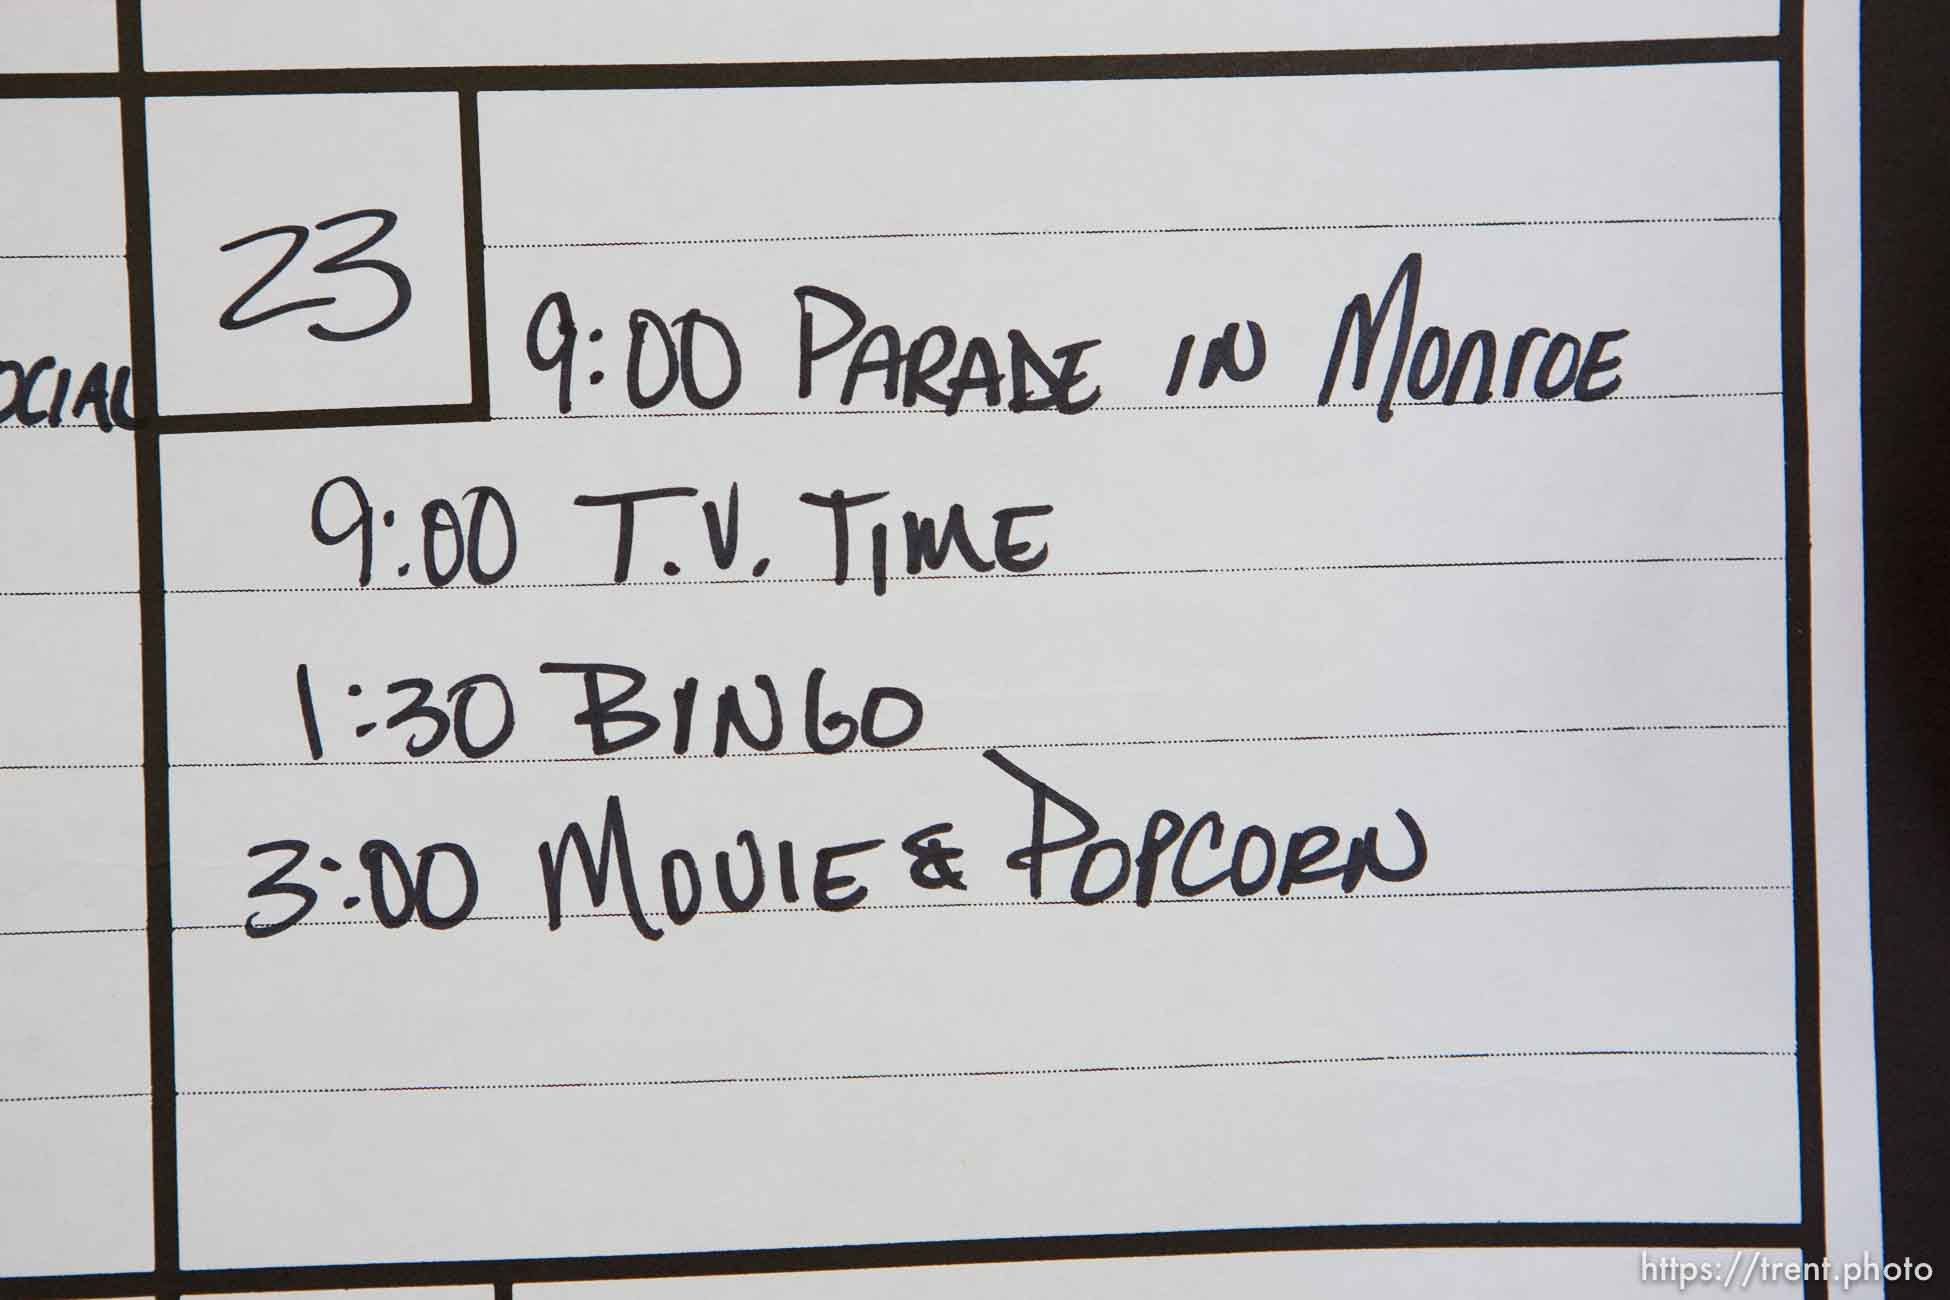 OCIAL
23
9:00 PARADE IN MONROE
9:00 T.V. TIME
1:30 BINGO
3:00 MOVIE & POPCORN
https://trent.photo